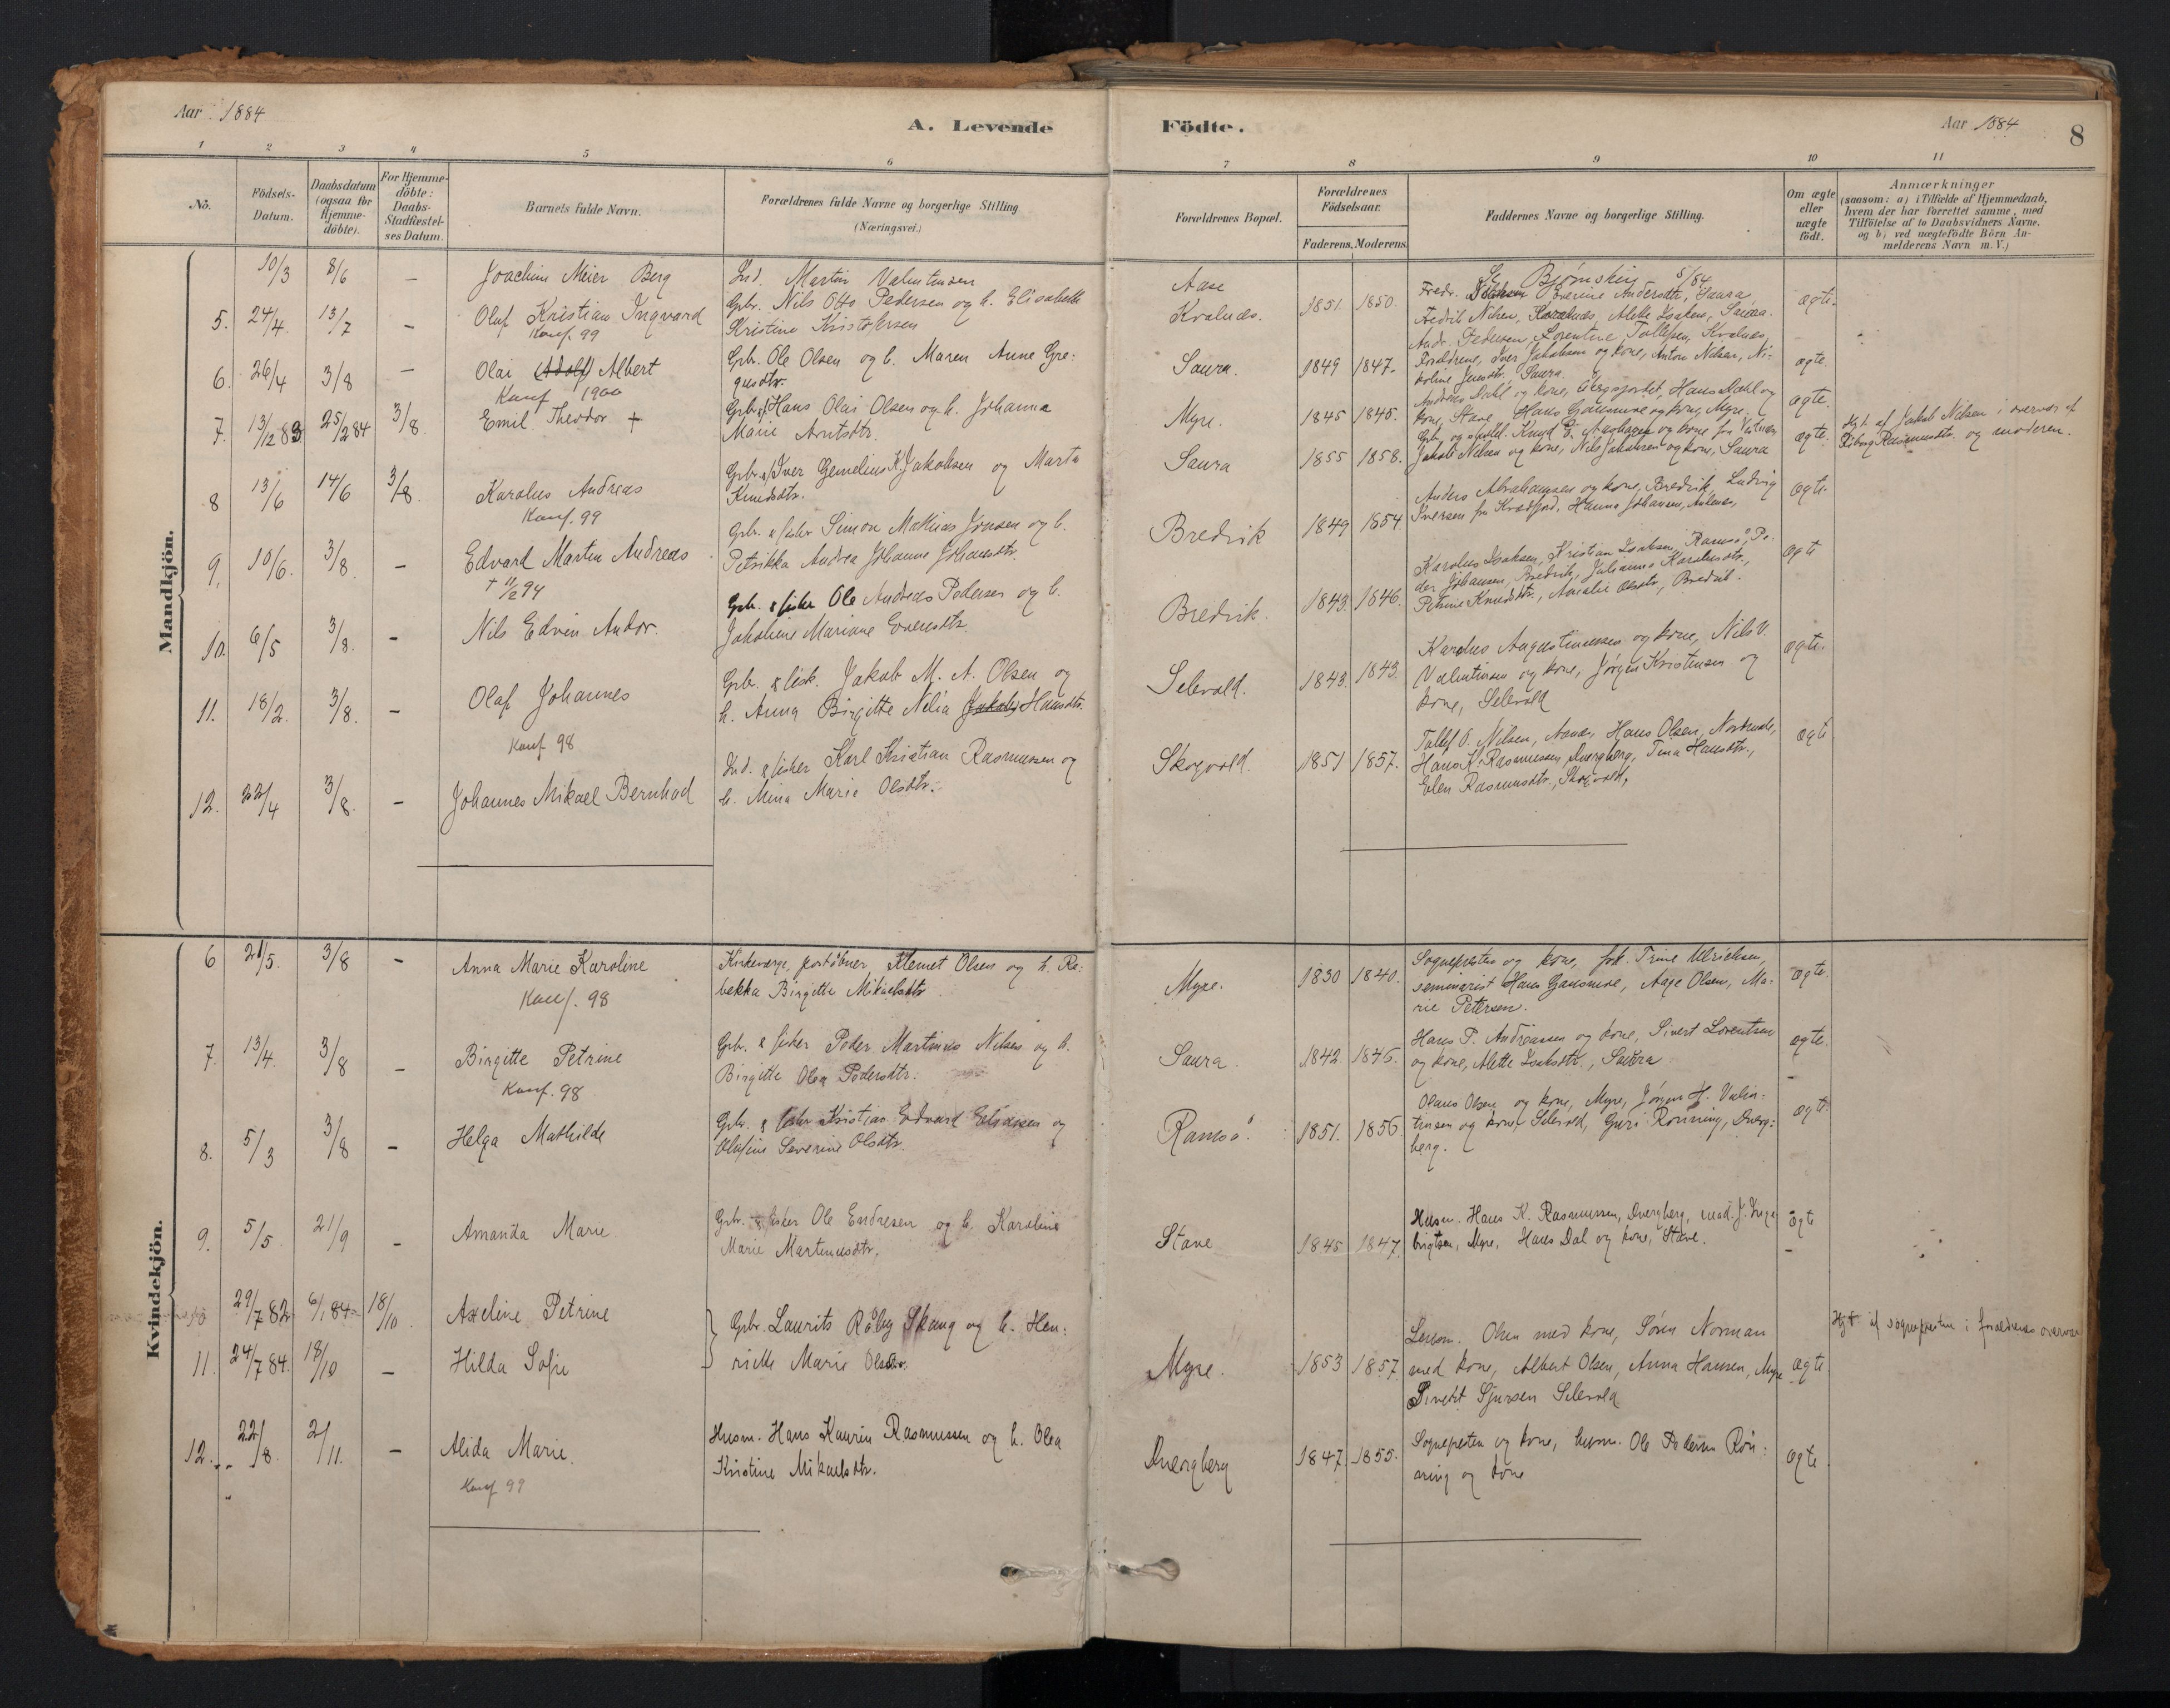 Aar 1884
A. Levende
Födte.
Aar 1884
8
1 2 3 4 5 6 7 8 9 10 11
No.
Födsels-
Datum.
Daabsdatum
(ogsaa for
Hjemme-
döbte).
For Hjemme-
döbte:
Daabs-
Stadfæstel-
ses Datum.
Barnets fulde Navn.
Forældrenes fulde Navne og borgerlige Stilling
(Næringsvei.)
Forældrenes Bopæl.
Forældrenes
Födselsaar.
Faderens. Moderens.
Faddernes Navne og borgerlige Stilling.
Om ægte
eller
uægte
födt.
Anmærkninger
(saasom: a) i Tilfælde af Hjemmedaab,
hvem der har forrettet samme, med
Tilföielse af to Daabsvidners Navne.
og b) ved uægtefödte Börn An-
melderens Navn m. V.)
Mandkjön.
10/3 8/6 – Joachim Meier Berg Ind. Martin Valentinsen Aase Se Bjørnskin 5/84
5. 24/4. 13/7 – Olaf Kristian Ingvard Gbr. Nils Otto Pedersen og h. Elisabeth Kvalnæs. 1851. 1850. Fredr. Severine Andersdtr, Saura ægte.
Konf. 99 Kristine Kristofersen Fredrik Nilsen, Alette Isaksen, Saura.
Andr. Pedersen, Lorentine Tollefsen, Kvalnæs,
6. 26/4 3/8 – Olai (Adolf) Albert Gbr. Ole Olsen og h. Maren Anne Gre- Saura. 1849 1847. Forældrene, Iver Jakobsen og kone, Anton Nilsen, Ni- ægte.
Konf 1900 gusdtr. koline Jensdtr, Saura.
7. 13/12 83 25/2 84 3/8. Emil Theodor + Gbr. Hans Olai Olsen og h. Johanna Myre. 1845 1845. Andreas Dahl og kone, Hans Dahl og ægte.
Marie Arntsdtr. kone, Stave, Hans Gausmoe og kone, Myre.
8 13/6 14/6 3/8. Karolus Andreas Gbr. Iver Gemelius K. Jakobsen og Marta Saura 1855 1858. Jakob Nilsen og kone, Nils Jakobsen og kone, Saura ægte. Hjd. af Jakob Nilsen i overvær af
Konf. 99 Knudsdtr. Rasmusdtr. og moderen.
9. 10/6. 3/8. – Edvard Martin Andreas Gbr. & fisker Simon Mathias Jonsen og h. Bredvik 1849 1854 Anders Abrahamsen og kone, Bredvik, Ludvig ægte.
+ 11/2 94 Petrikka Andrea Johanne Johansdtr. Iversen fra Kvædfjord, Hanna Johansen,
10. 6/5 3/8. – Nils Edvin Andor. Gbr. & fisker Ole Andreas Pedersen og h. Bredvik. 1843. 1846. Karolus Isaksen, Kristian Isaksen, Ramsö, Pe- ægte
Jakobine Mariane Evensdtr. der Johansen, Bredvik, Julianna Karolusdtr.,
Petrine Knudsdtr, Amalie Olsdtr, Bredvik.
11. 18/2. 3/8. – Olaf Johannes Gbr. & fisk. Jakob M. A. Olsen og Selevold. 1843. 1843. Karolus Augustinussen og kone, Nils V. ægte.
Konf 98 h. Anna Birgitte Nilia Hansdtr. Valentinsen og kone, Jørgen Kristensen og
kone, Selevold
12. 22/4 3/8. – Johannes Mikael Bernhad Ind. & fisker Karl Kristian Rasmussen og Skogvold. 1851 1857. Tollef O. Nilsen, Aanæs, Hans Olsen, ægte
h. Mina Marie Olsdtr. Hans K. Rasmussen, Dvergberg, Tina Hansdtr.,
Elen Rasmusdtr., Skogvold,
Kvindekjön.
6 21/5. 3/8 – Anna Marie Karoline Kirkeværge, postaabner Klemet Olsen og h. Re- Myre. 1830 1840. Sognepresten og kone, frk. Trine Ulrichsen, ægte.
Konf. 98 bekka Birgitte Mikaelsdtr. seminarist Hans Gausmoe, Aage Olsen, Ma-
rie Petersen.
7. 13/4. 3/8 – Birgitte Petrine Gbr. & fisker Peder Martinus Nilsen og h. Saura. 1842. 1846. Hans P. Andreassen og kone, Sivert Lorentsen ægte.
Konf. 98 Birgitte Olea Pedersdtr. og kone, Alette Isaksdtr., Saura
8. 5/3 3/8 – Helga Mathilde Gbr. & fisker Kristian Edvard Eliassen og Ramsö. 1851. 1856 Olaus Olsen og kone, Myre, Jörgen H. Valen- ægte.
Olafine Severine Olsdtr. tinsen og kone, Selevold, Guri Rönning, Dverg-
berg.
9. 5/5 21/9 – Amanda Marie Gbr. & fisker Ole Endresen og h. Karoline Stave 1845 1847. Husm. Hans K. Rasmussen, Dvergberg, mad. J. Inge- ægte
Marie Martinusdtr. brigtsen, Myre, Hans Dal og kone, Stave.
29/7 82 6/1 84 18/10. Axeline Petrine Gbr. Laurits Röby Skaug og h. Hen- Hjd. af sognepresten i forældrenes overvær
11. 24/7 84. 18/10 – Hilda Sofie riette Marie Olsdtr. Myre. 1853 1857. Lensm. Olsen med kone, Sören Norman ægte
med kone, Albert Olsen, Anna Hansen, Myre
Sivert Sjursen Selevold
12. 22/8. 2/11. – Alida Marie. Husm. Hans Kaurin Rasmussen og h. Olea Dvergberg 1847. 1855. Sognepresten og kone, husm. Ole Pedersen Rön- ægte
Konf 99 Kristine Mikaelsdtr. ning og kone